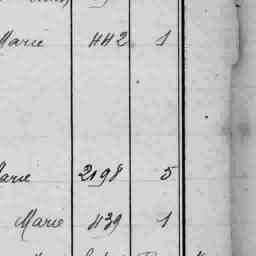 Marie 442 1
Marie 2198 5
Marie 439 1